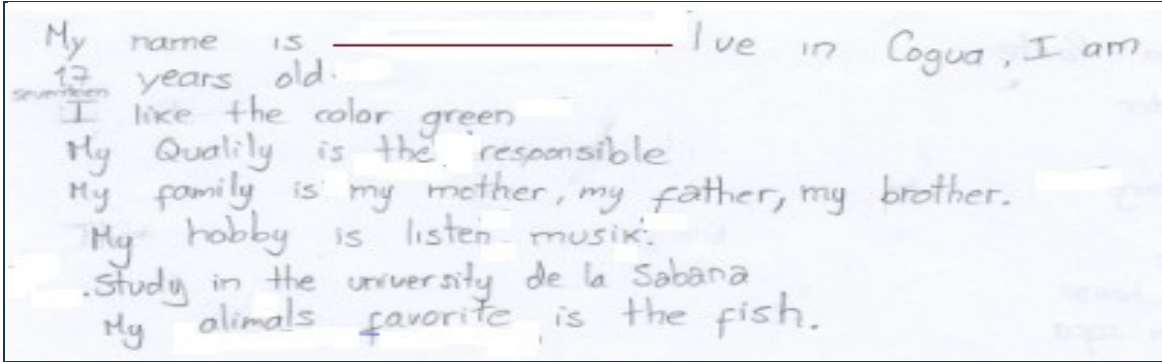 My name is I ve in Cogua, I am
17 years old.
seventeen
I like the color green
My Qualily is the responsible
My family is my mother, my father, my brother.
My hobby is listen musix.
.Study in the university de la Sabana
My alimals favorite is the fish.